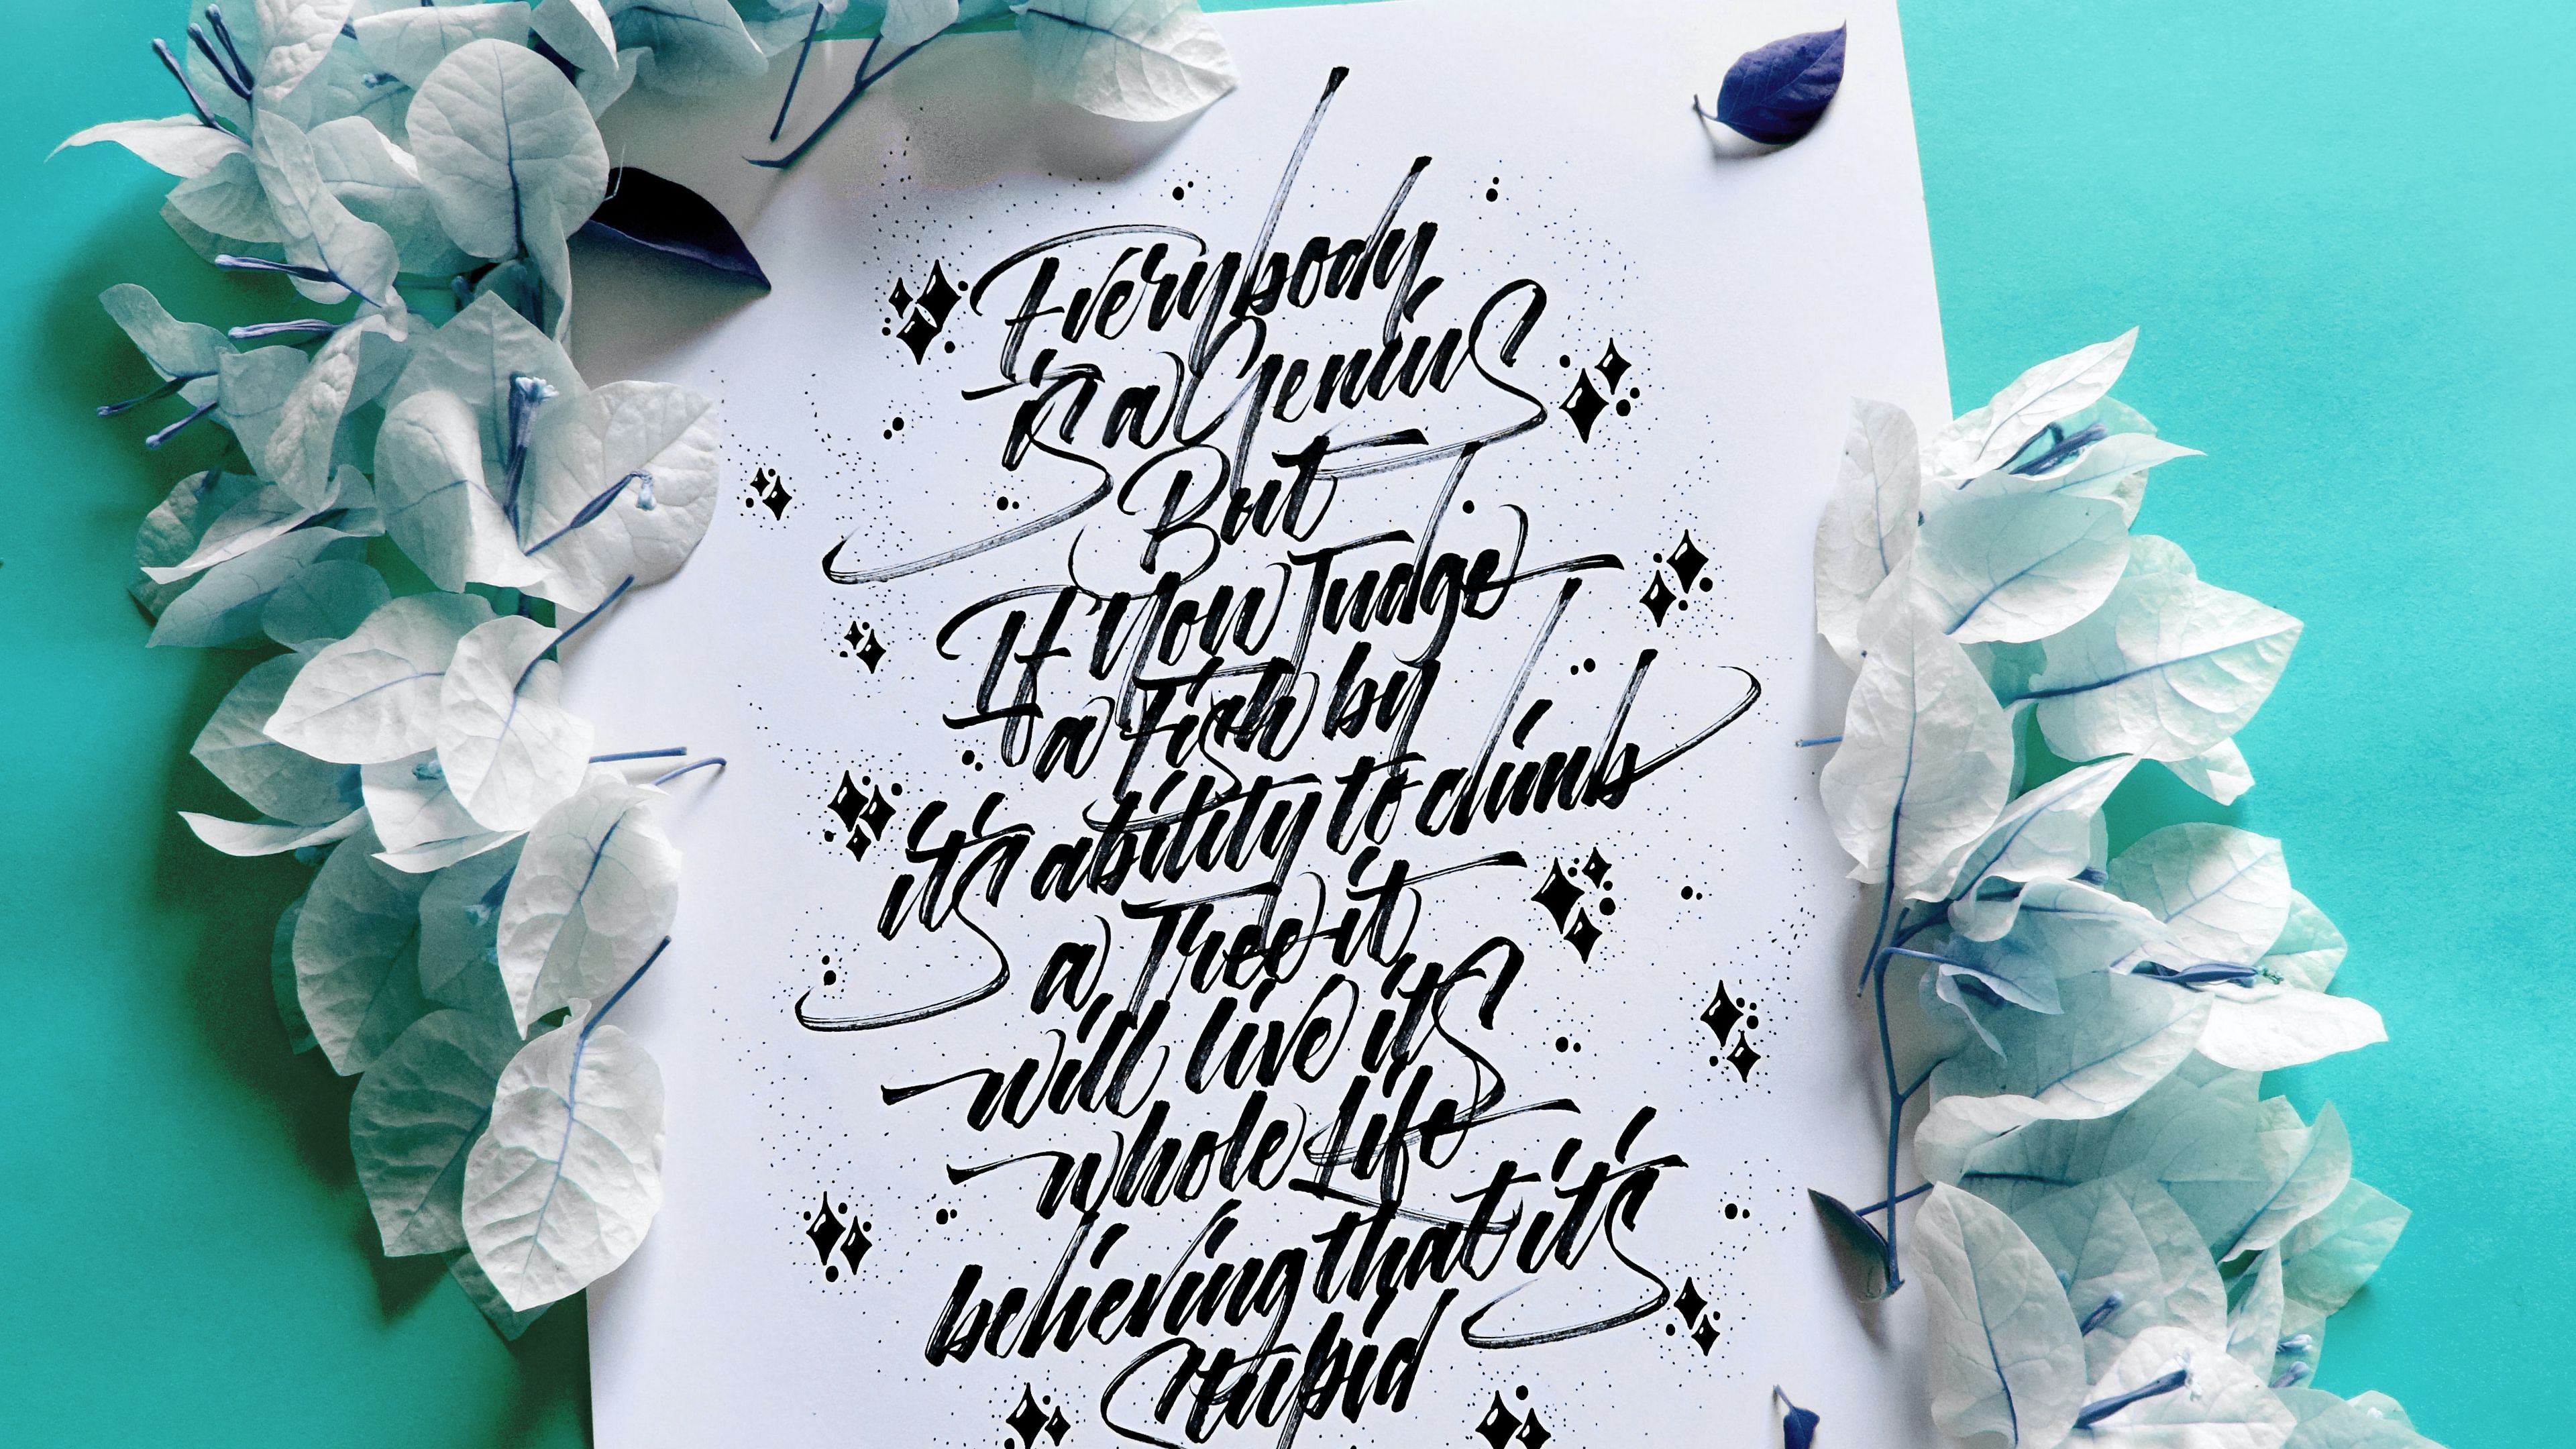 Everybody
is a Genius
But
If You Judge
a Fish by
it's ability to climb
a Tree it
will live it's
whole Life
believing that it's
Stupid